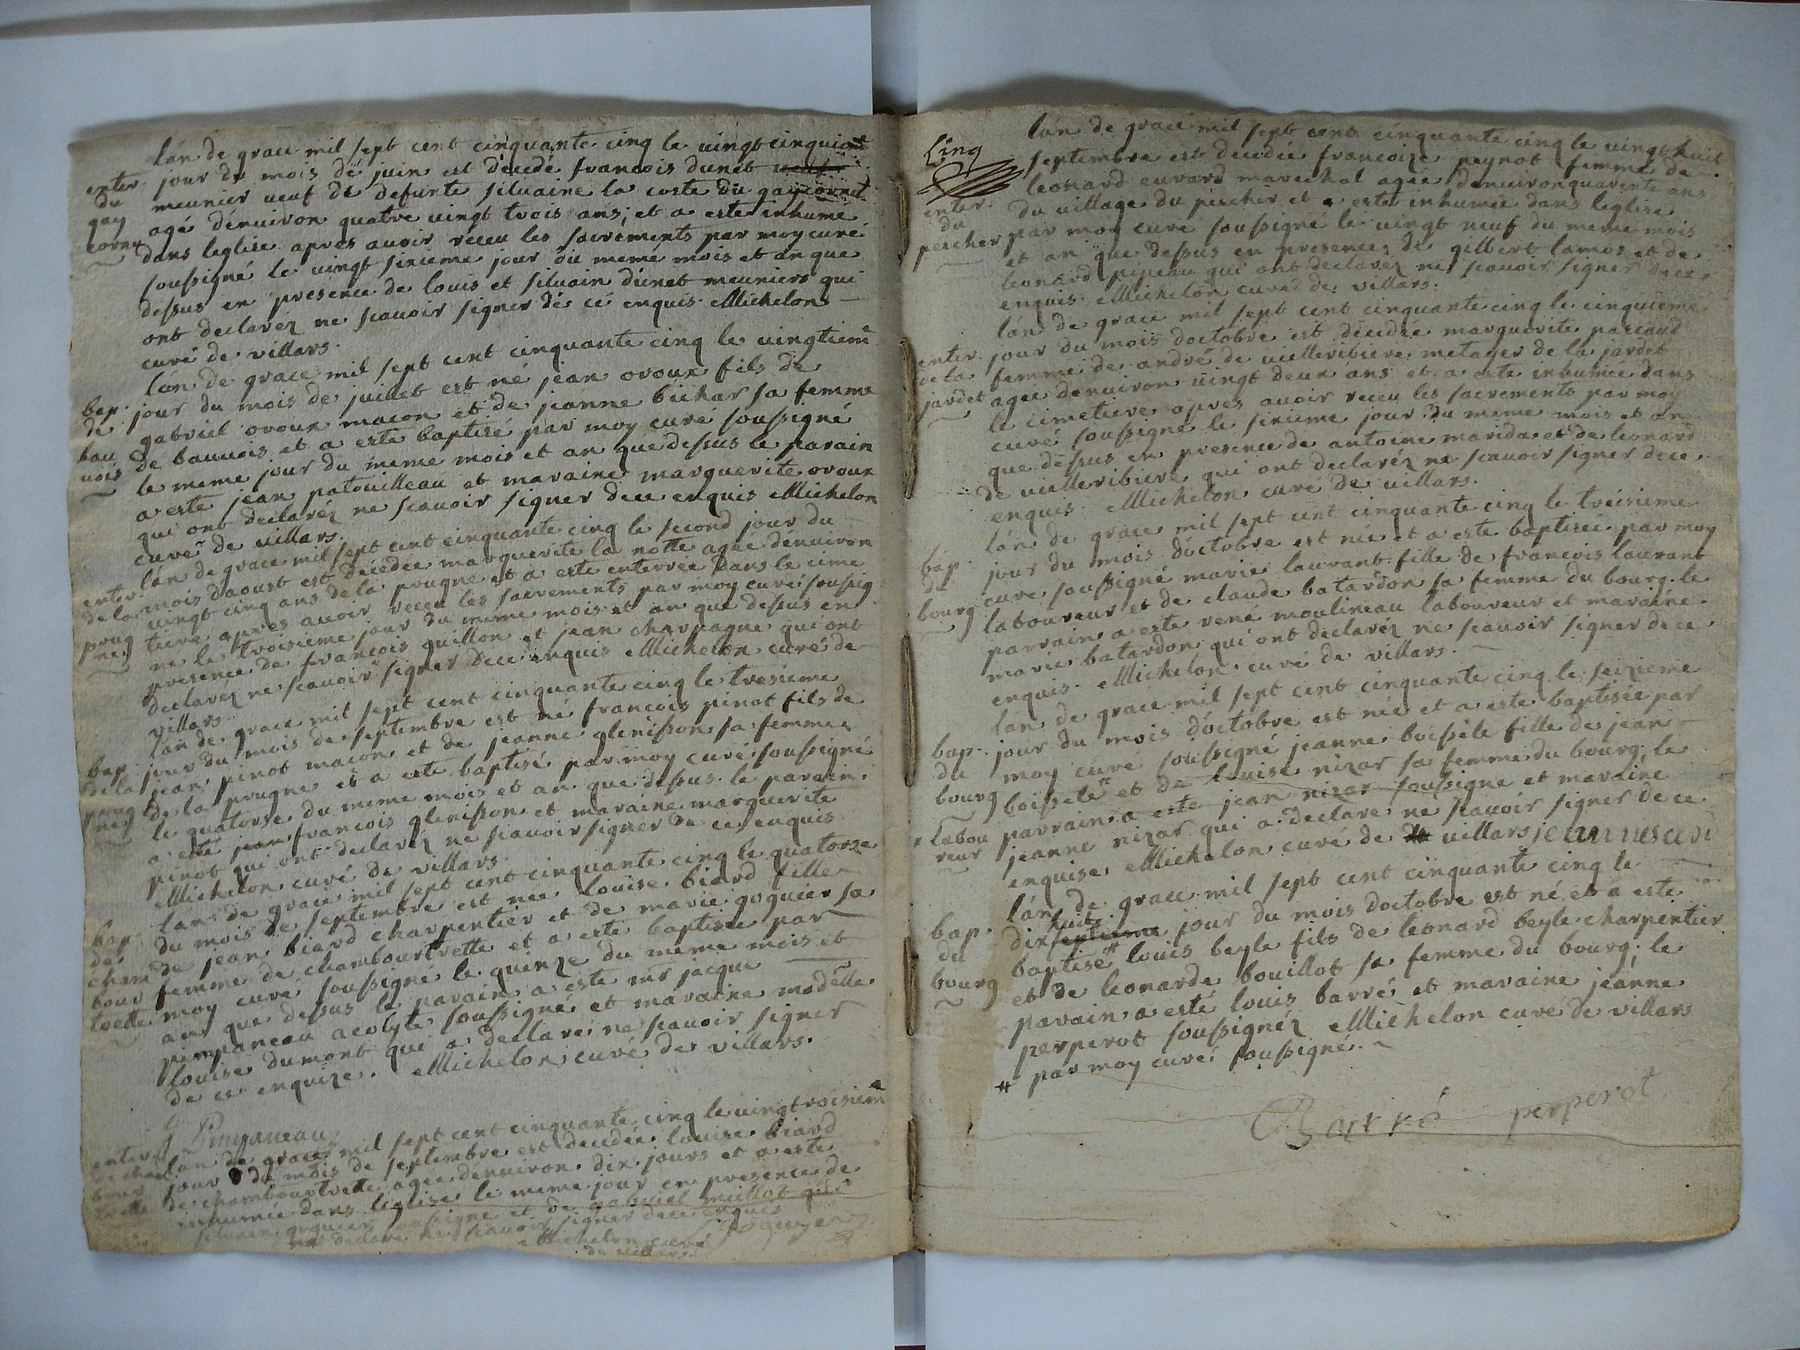 lán de grace mil sept cent cinquante cinq le vingt cinquieme
enter jour du mois de juin est décédé francois dunet
du meunier veuf de defunte siluaine la coste du gay cornet
gay agé dénuiron quatre vingt trois ans, et a este inhume
cornu dans leglise apres auoir receu les sacréments par moy curé
soussigne le vingt sixieme jour du meme mois et an que
dessus en presence de louis et siluain dunet meuniers qui
ont declarez ne scauoir signer dé ce enquis Michelon
curé de villars.
lán de grace mil sept cent cinquante cinq le vingtieme
bap. jour du mois de juillet est né jean oroux fils de
de gabriel oroux macon et de jeanne bichar sa femme
bau de bauuois et a este baptisé par moy curé soussigné
uois le meme jour du meme mois et an que dessus le parain
a este jean patouilleau et maraine marguerite oroux
qui ont declarez ne scauoir signer dece enquis Michelon
curé de villars.
lán de grace mil sept cent cinquante cinq le second jour du
enter. mois daoust est decedée marguerite la notte agée denuiron
de la vingt cinq ans de la prugne et a este enterrée dans le cime
prug tiere apres auoir receu les sacrements par moy curé soussig
ne ne le troisieme jour du meme mois et an que dessus en
presence de francois guillon et jean charpagne qui ont
declarez ne scauoir signer dece enquis Michelon curé de
villars.
lán de grace mil sept cent cinquante cinq le tresieme
bap jour du mois de septembre est né francois pinot fils de
de la jean pinot macon et de jeanne glenisson sa femme
prug de la prugne et a este baptisé par moy curé soussigné
ne le quatorse du meme mois et an que dessus le parain
a esté francois glenisson et maraine marguerite
pinot qui ont declaréz ne scauoir signer de ce enquis
Michelon curé de villars.
lan de grace mil sept cent cinquante cinq le quatorze
bap. du mois de septembre est née louise biard fille
de de jean biard charpentier et de marie goguier sa
cham femme de chambourtrette et a este baptisée par
bour moy curé soussigné le quinze du meme mois et
trette an que dessus le parain a este mr jacque
pimpaneau acolyte soussigné et maraine madelle
louise dumont qui a declaré ne scauoir signer
de ce enquize. Michelon curé de villars.
J Pimpaneau
enter lán de grace mil sept cent cinquante cinq le vingt troisieme
de cham jour du mois de septembre est decedée louise biard
bour de chambourtrette agée denuiron dix jours et a este
trette inhumée dans leglise le meme jour en presence de
siluain goguier soussigne et de gabriel millot qui
ont declaré ne scauoir signer dece enquis
Michelon curé
de villars.
Cinq
lán de grace mil sept cent cinquante cinq le vingt huit
septembre est decedée francoize peynot femme de
leonard euvard marechal agée denuiron quarente ans
enter. du village du peicher et a este inhumée dans leglise
du
peicher par moy curé soussigné le vingt neuf du meme mois
et an que dessus en presence de gilbert lamos et de
leonard pipeau qui ont declarez ne scauoir signer dece
enquis. Michelon curé de villars.
lán de grace mil sept cent cinquante cinq le cinquieme
enter jour du mois doctobre est décedée marguerite
de la femme de andré de vielleribiere metayer de la jardet
jardet agée denuiron vingt deux ans et a este inhumée dans
le cimetiere apres auoir receu les sacrements par moy
curé soussigné le sixieme jour du meme mois et an
que dessus en presence de antoine marida et de leonard
de vielleribiere qui ont declarez ne scauoir signer dece
enquis. Michelon curé de villars.
lán de grace mil sept cent cinquante cinq le treisieme
bap. jour du mois doctobre est née et a este baptisée par moy
du curé soussigné marie laurant fille de francois laurant
bourg laboureur et de claude batardon sa femme du bourg. le
parrain a este rené moulineau laboureur et maraine
marie batardon qui ont declaréz ne scauoir signer dece
enquis. Michelon curé de villars.
lan de grace mil sept cent cinquante cinq le seizieme
bap. jour du mois doctobre est née et a este baptisée par
du moy curé soussigné jeanne boissele fille de jean
bourg boissele et de louise nizar sa femme du bourg; le
labou parrain a este jean nizar soussigne et maraine
reur jeanne nizar qui a declare ne scauoir signer de ce
enquise, Michelon curé de villars
lán de grace mil sept cent cinquante cinq le
huit
bap. dix septieme jour du mois doctobre est né et a este
du baptisé # louis beyle fils de leonard beyle charpentier
bourg et de leonarde bouillot sa femme du bourg; le
parain a esté louis barré et maraine jeanne
perperot soussignéz Michelon curé de villars
# par moy curé soussigné.
Barré perperot